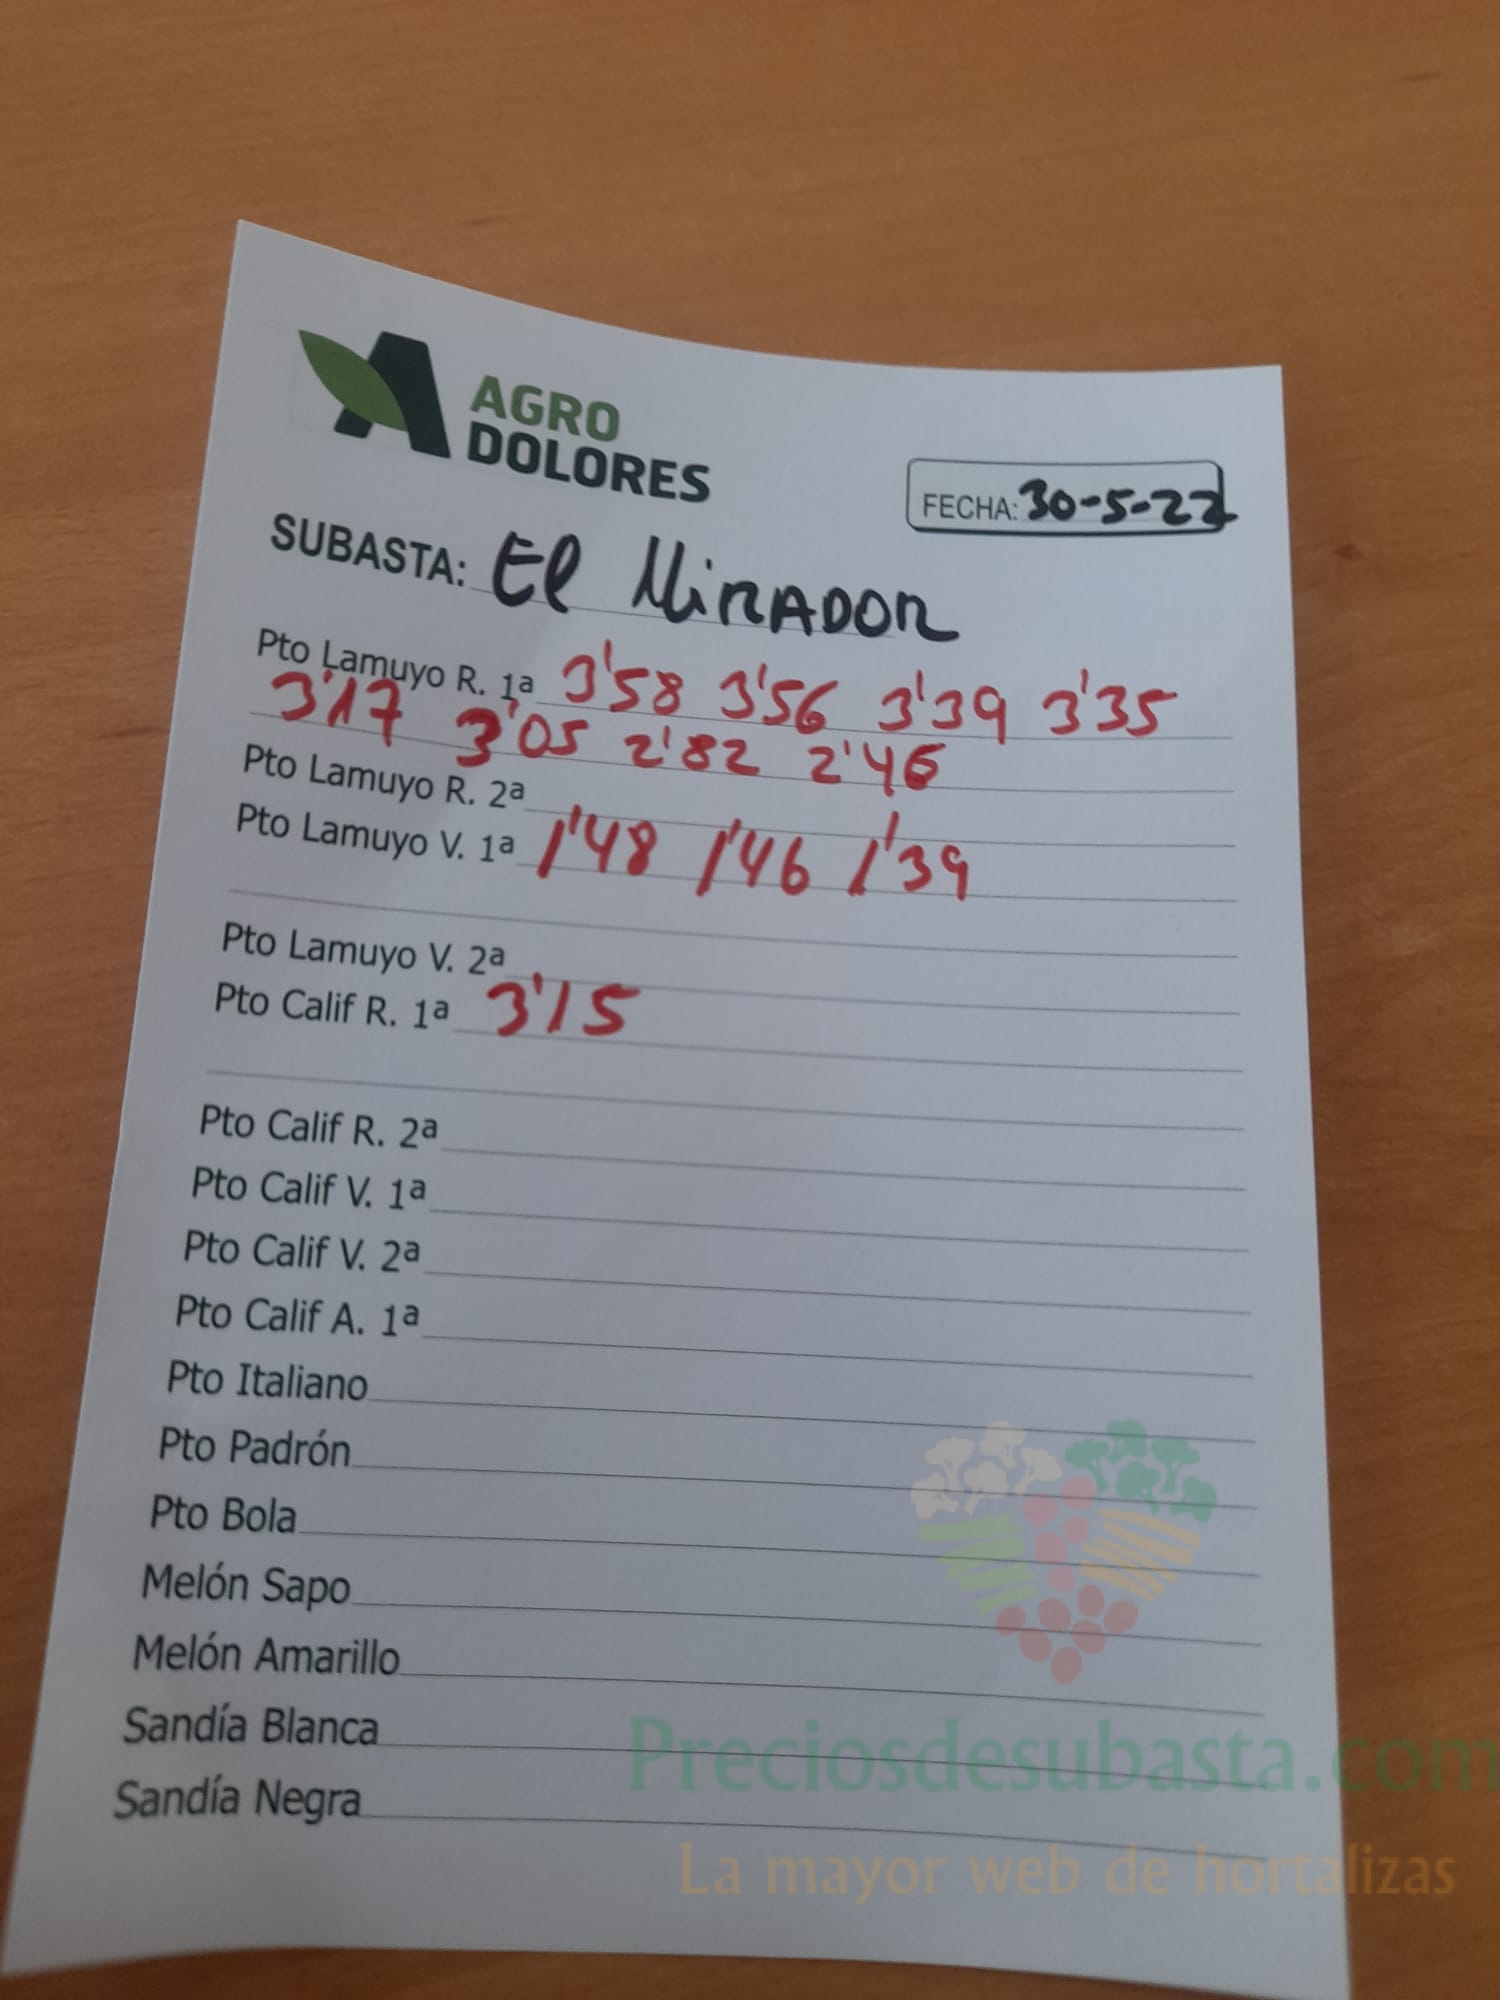 AGRO
DOLORES
FECHA: 30-5-22
SUBASTA: El MiRADOR
Pto Lamuyo R. 1ª 3'58 3'56 3'39 3'35
3'17 3'05 2'82 2'46
Pto Lamuyo R. 2ª
Pto Lamuyo V. 1ª 1'48 1'46 1'39
Pto Lamuyo V. 2ª
Pto Calif R. 1ª 3'15
Pto Calif R. 2ª
Pto Calif V. 1ª
Pto Calif V. 2ª
Pto Calif A. 1ª
Pto Italiano
Pto Padrón
Pto Bola
Melón Sapo
Melón Amarillo
Sandía Blanca
Sandía Negra
Preciosdesubasta.com
La mayor web de hortalizas